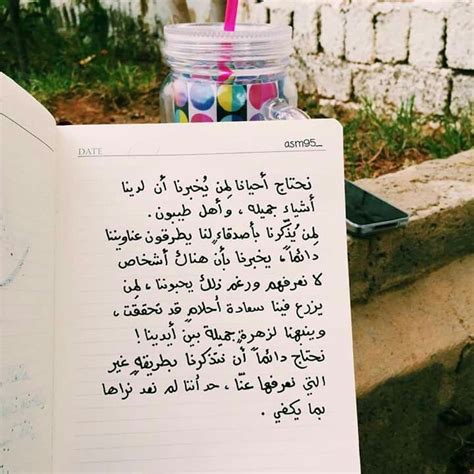 asm95_
DATE
نحتاج أحيانا لمن يُخبرنا أن لدينا
أشياء جميله ، وأهل طيبون .
لمن يُذّكرنا بأصدقاءٍ لنا يطرقون عناويننا
دائماً ، يخبرنا بأن هناك أشخاص
لا نعرفهم ورغم ذلك يحبوننا ، لمن
يزرع فينا سعادة أحلامٍ قد تحققت ،
وينبهنا لزهرةٍ جميلة بين أيدينا !
نحتاج دائماً أن نتذكرنا بطريقةٍ غير
التي نعرفها عنّا ، حد أننا لم نعد نراها
بما يكفي .